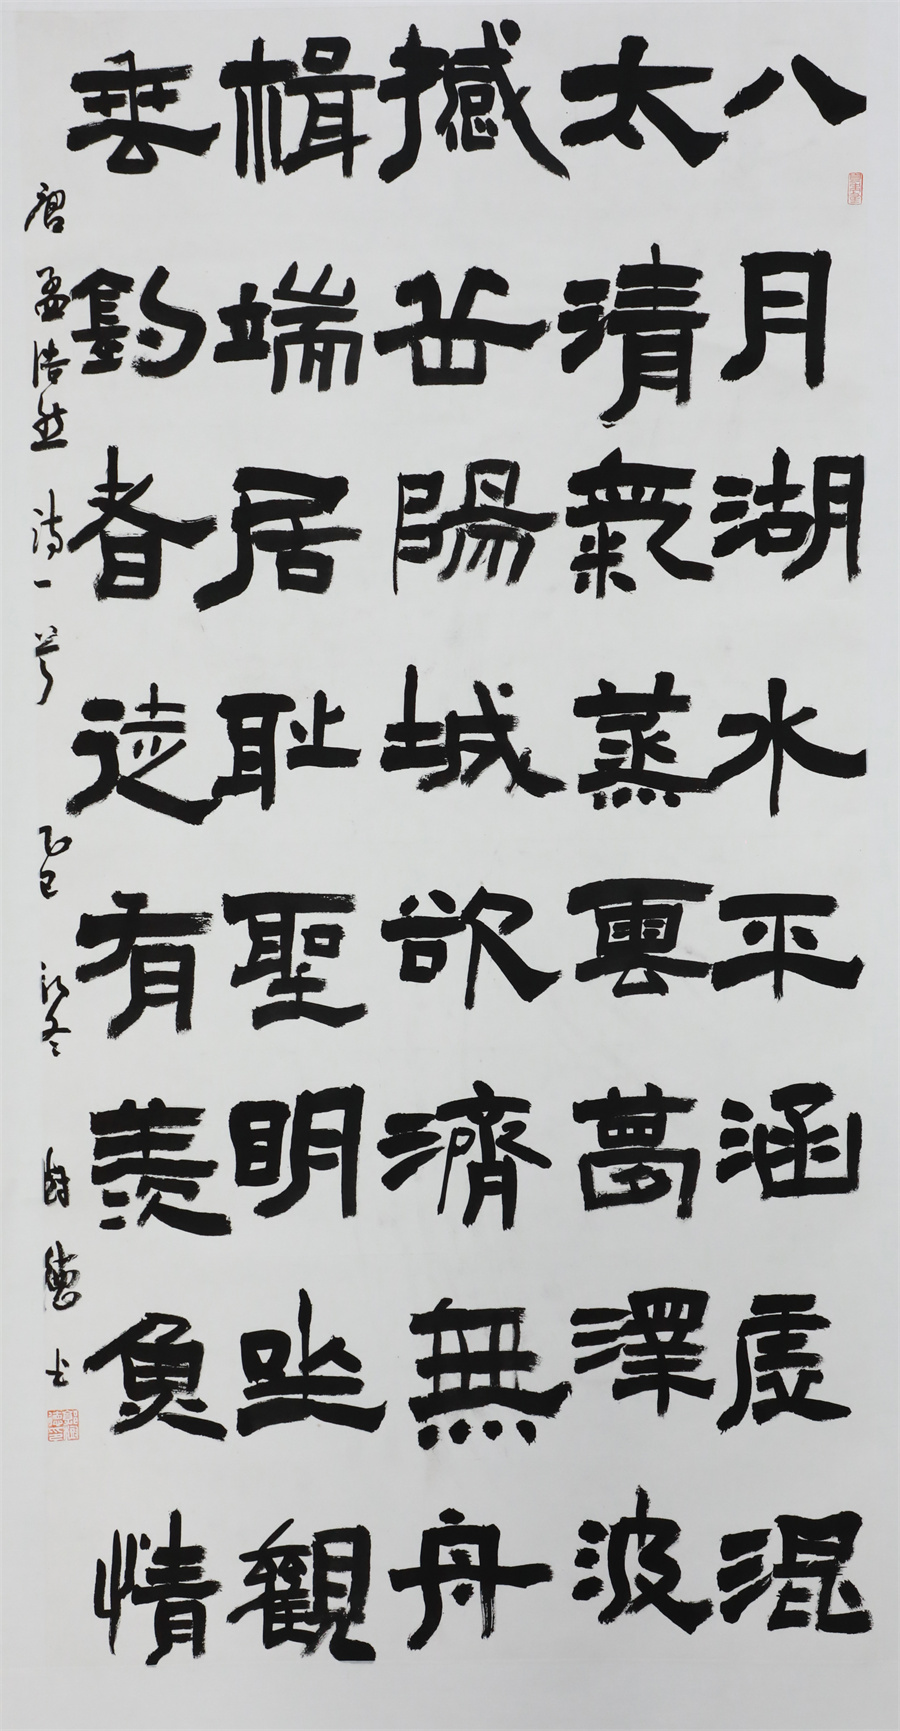 八月湖水平涵虛混
太清氣蒸雲夢澤波
撼岳陽城欲濟無舟
楫端居耻聖明坐觀
垂釣者徒有羨魚情
唐孟浩然诗一首 乙巳初冬 德